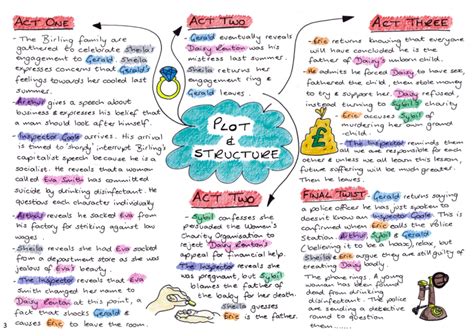 ACT ONE
- The Birling family are
gathered to celebrate Sheila's
engagement to Gerald. Sheila
expresses concerns that Gerald's
feelings towards her cooled last
summer.
- Arthur gives a speech about
business & expresses his belief that
a man should look after himself.
- Inspector Goole arrives. His arrival
is timed to 'shordy' interrupt Birling's
capitalist speech because he is a
socialist. He reveals that a woman
called Eva Smith has committed
suicide by drinking disinfectant. He
questions each character individually
- Arthur reveals he sacked Eva from
his factory for striking against low
wages.
- Sheila reveals she had Eva sacked
from a department store as she was
jealous of Eva's beauty.
- The Inspector reveals that Eva
Smith changed her name to
Daisy Renton at this point, a
fact that shocks Gerald &
causes Eric to leave the room.
3
ACT TWO
- Gerald eventually reveals
Daisy Renton was his
mistress last summer.
- Sheila returns her
engagement ring &
Gerald leaves.
PLOT
&
STRUCTURE
ACT TWO
- Sybil confesses she
persuaded the Women's
Charity Organisation to
reject Daisy Renton's
appeal for financial help.
- The Inspector reveals she
was pregnant, but Sybil
blames the father of
the baby for her death.
Sheila guesses
Eric is the father.
ACT THREE
- Eric returns knowing that everyone
will have concluded he is the
father of Daisy's unborn child.
- He admits he forced Daisy to have sex,
fathered the child then stole money
to try & support her. Daisy refused,
instead turning to Sybil's charity
- Eric accuses Sybil of
murdering her own grand
-child.
- The Inspector reminds them
all we are responsible for each
other & unless we all learn this lesson,
future suffering will be much greater.
Then he leaves.
FINAL TWIST
Gerald returns saying
a police officer he has just spoken to
doesn't know an Inspector Goole. This is
confirmed when Eric calls the Police
Station. Arthur, Sybil & Gerald
(believing it to be a hoax), relax, but
Sheila & Eric argue they are still guilty
of treating Daisy badly.
The phone rings. A young
woman has been found
dead from drinking
disinfectant. The police
are sending a detective
round to question
them...